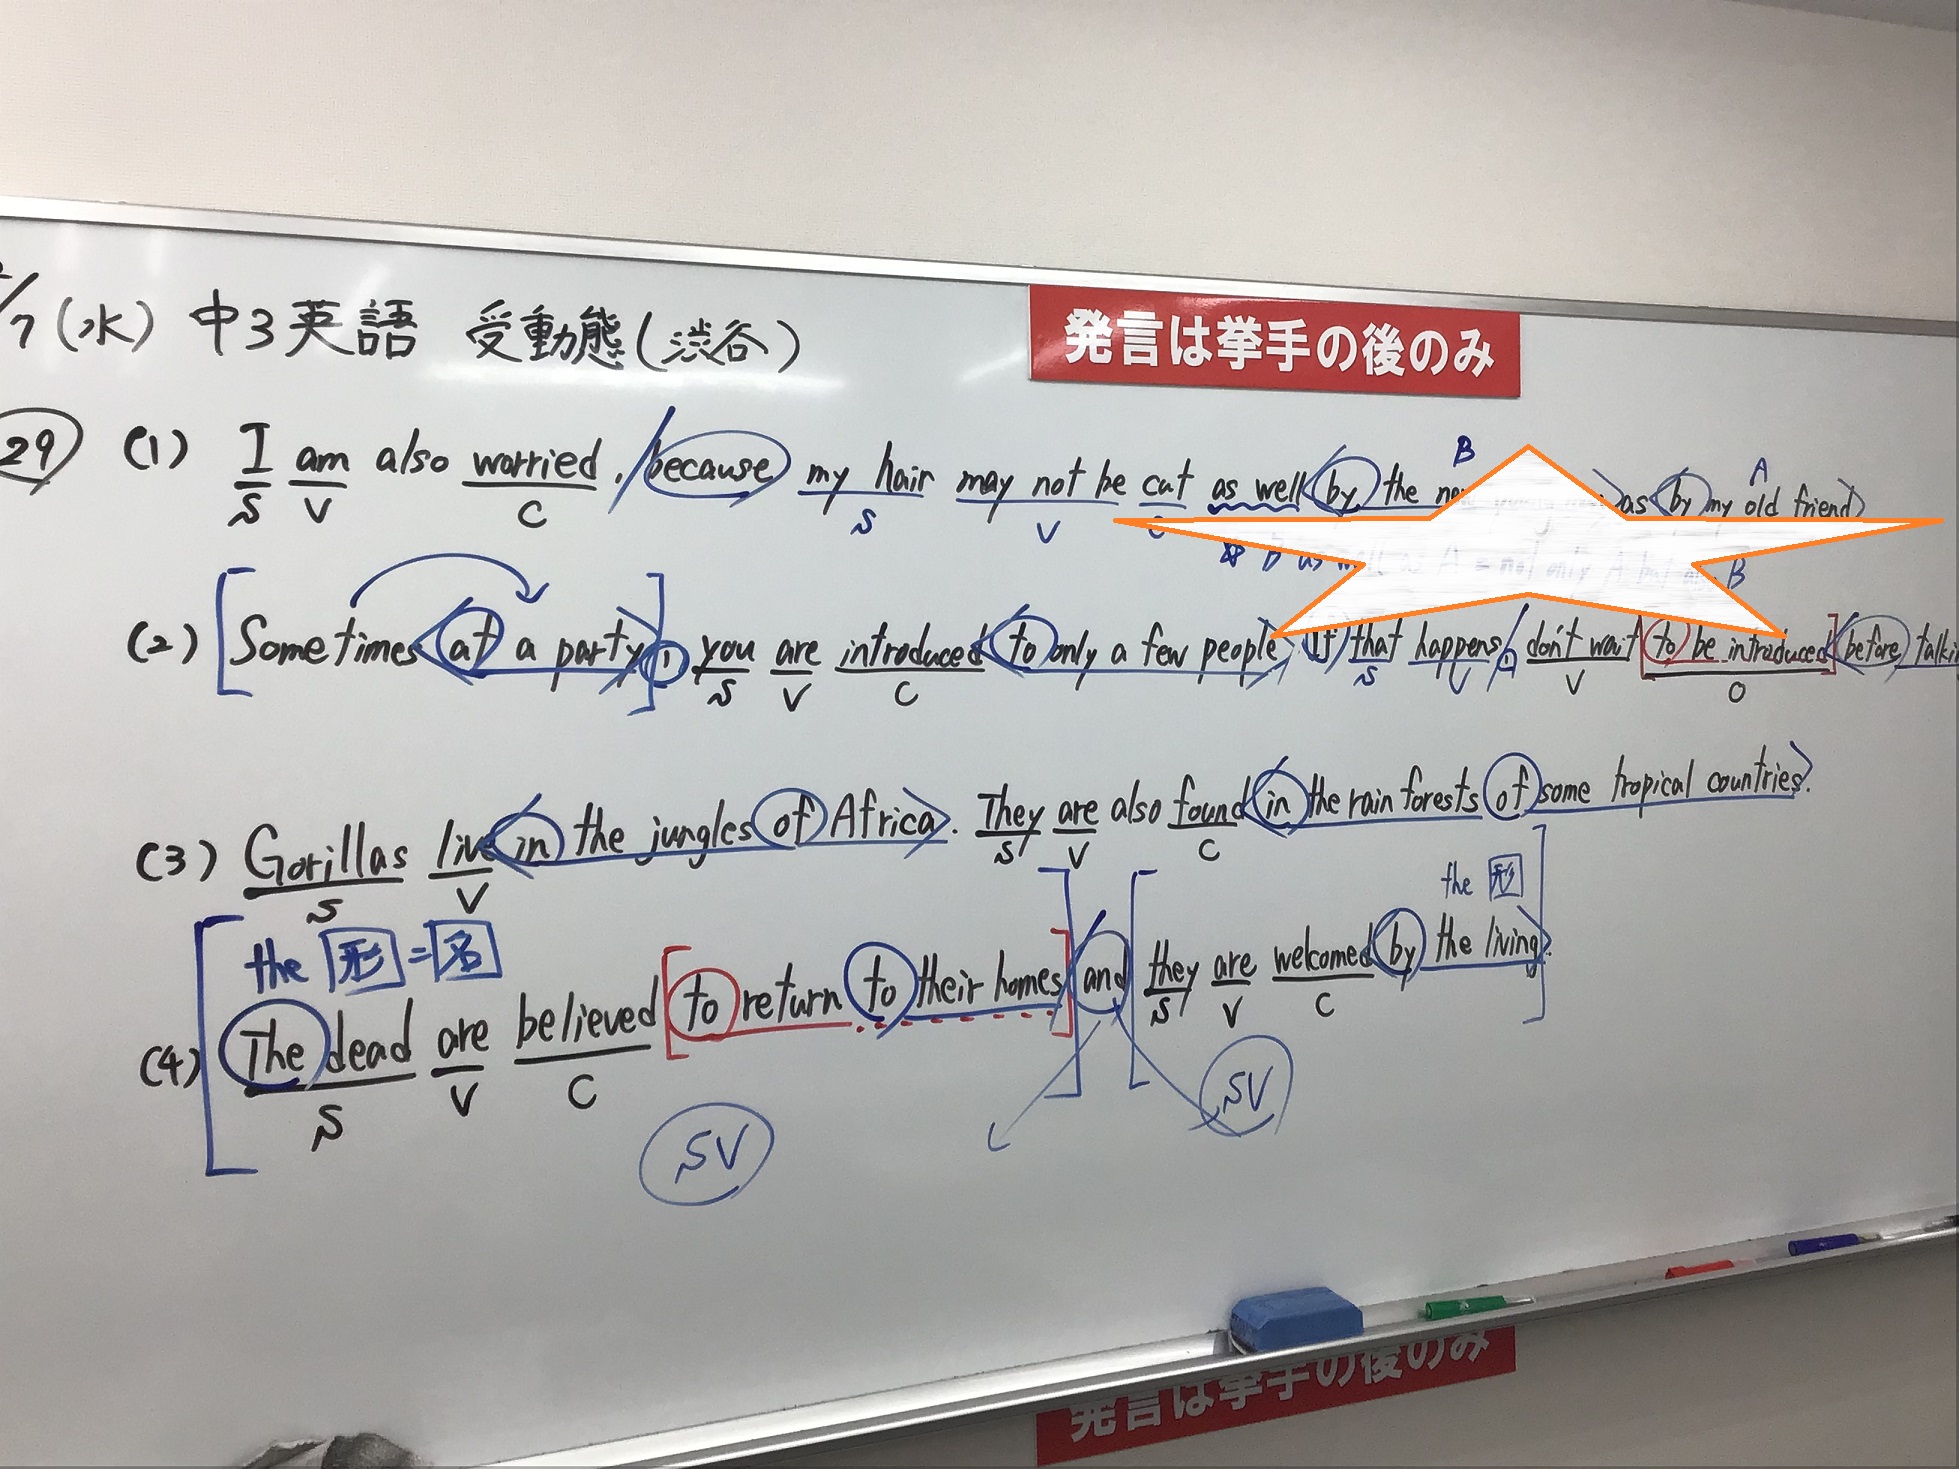 /7 (水) 中3英語 受動態 (渋谷)
発言は挙手の後のみ
29 (1) I am also worried, because my hair may not be cut as well by the as by my old friend
S V C S V B A
B as well as A = not only A but B
(2) Sometimes at a party, you are introduced to only a few people. If that happens, don't wait to be introduced before
S V C S V V O
(3) Gorillas live in the jungles of Africa. They are also found in the rain forests of some tropical countries.
S V S V C
the 形 = 名 the 形
(4) The dead are believed to return to their homes and they are welcomed by the living.
S V C S V C
SV SV
発言は挙手の後のみ